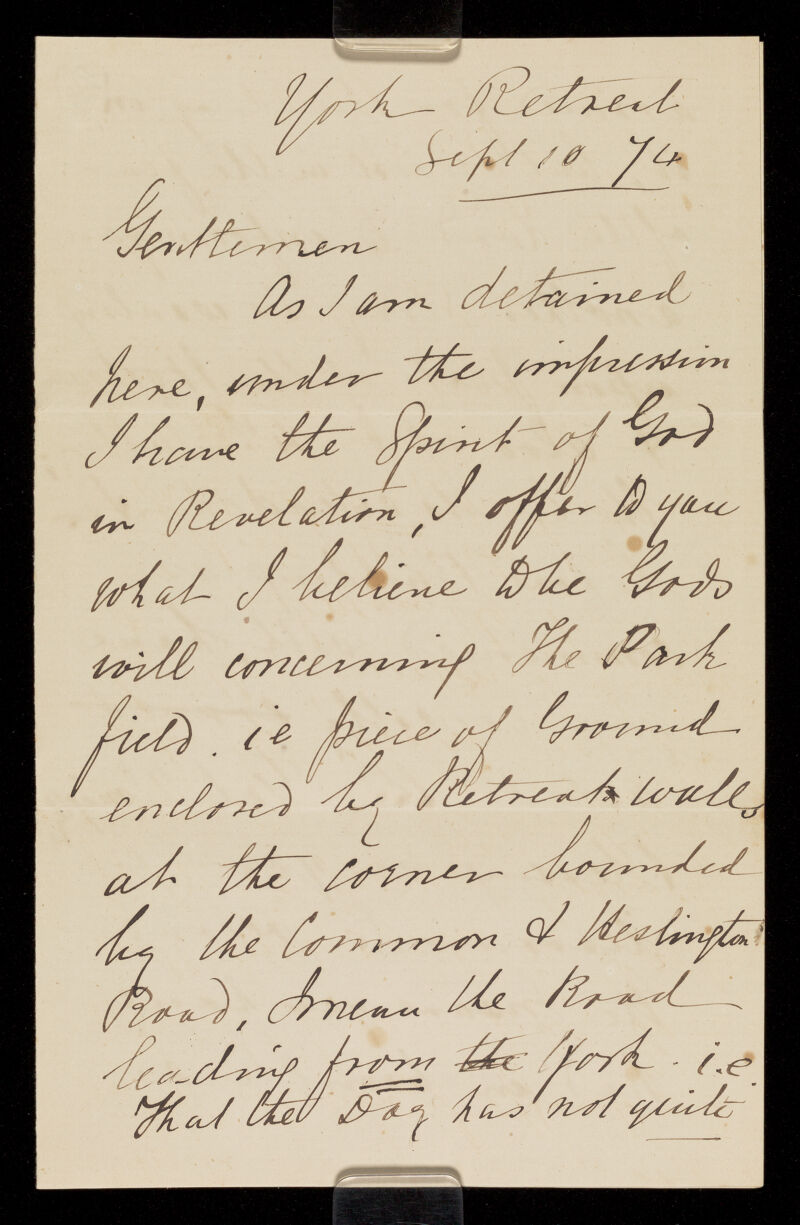 York Retreat
Sept 10 74
Gentlemen
As I am detained
here, under the impression
I have the Spirit of God
in Revelation, I offer to you
what I believe to be Gods
will concerning The Park
field. ie piece of Ground
enclosed by Retreat walls
at the corner bounded
by the Common & Heslington
Road, I mean the Road
leading from the York. i.e.
That the Day has not quite